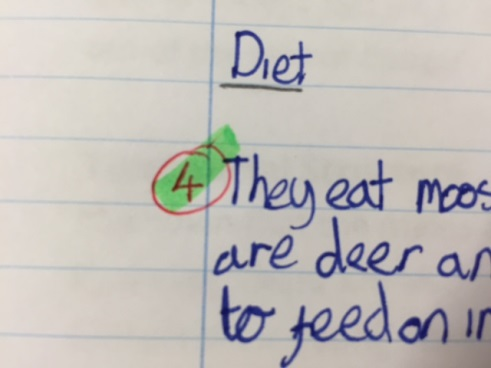 Diet
4 They eat
are deer
to feed on in